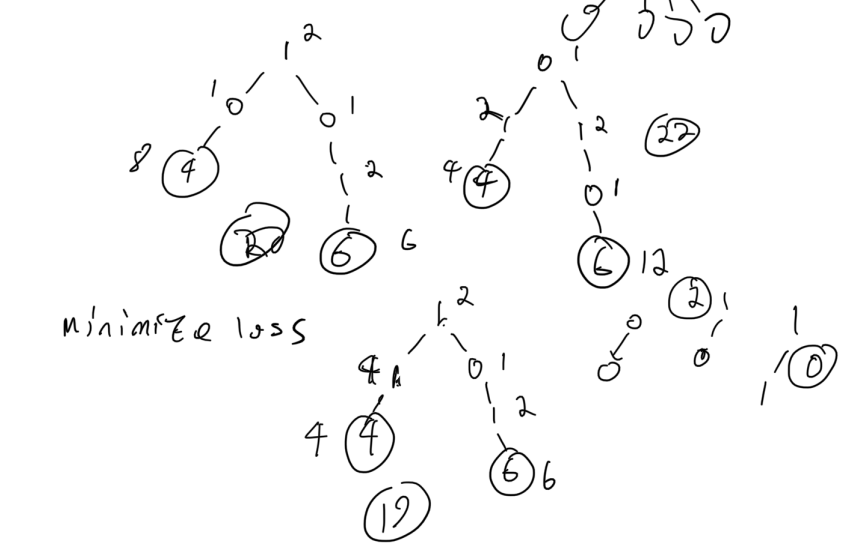 1 2
1 0
0 1
8 4
2
20
6 6
0 1
2 1
1 2
22
4 4
0 1
6 12
minimize loss
1 2
4
0 1
1 2
4 4
6 6
19
0
0
2 1
0
1
1 0